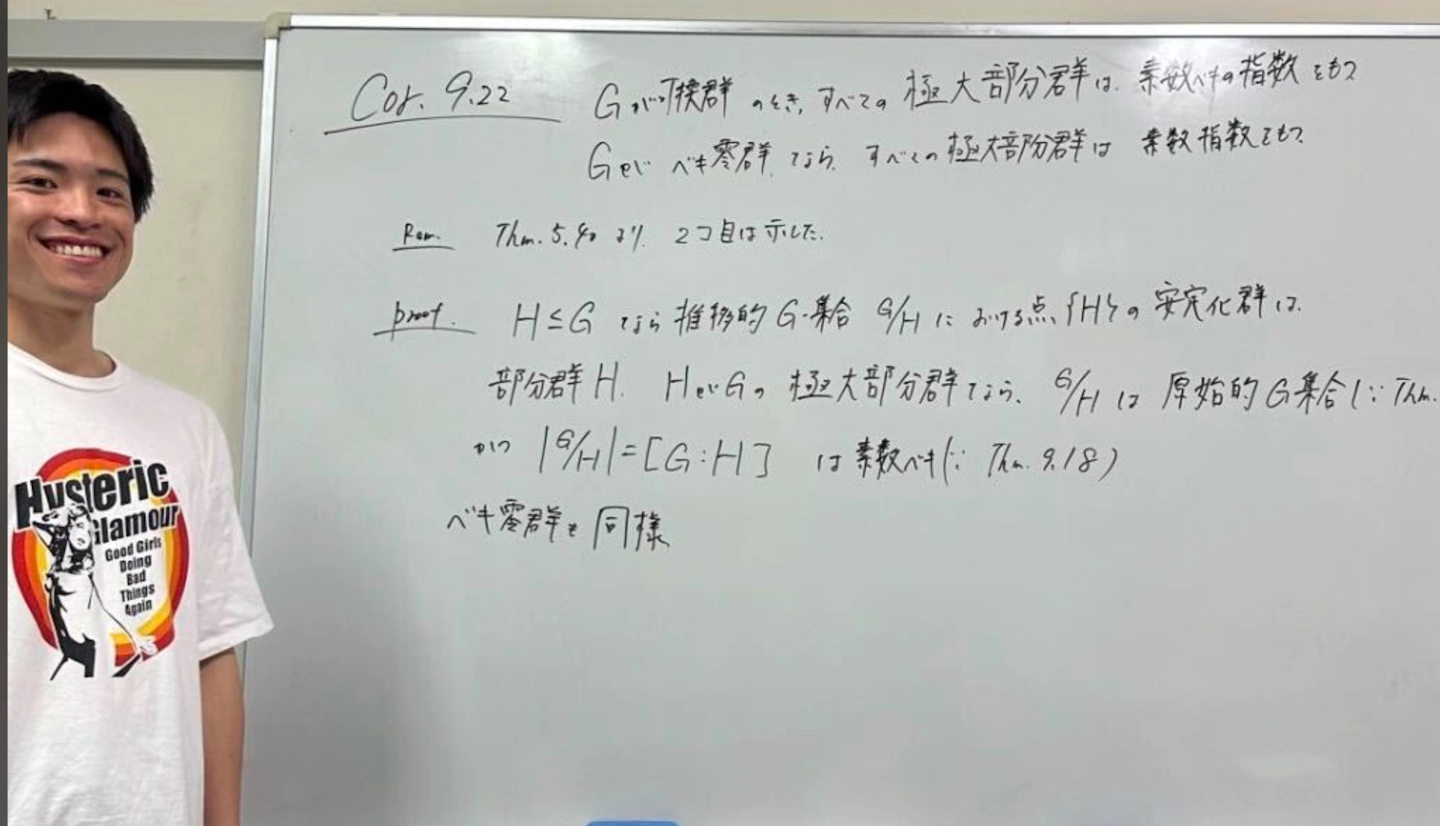 Cor. 9.22 Gが可換群のとき, すべての極大部分群は, 素数ベキの指数をもつ
Gがベキ零群, なら, すべての極大部分群は 素数指数をもつ
Rem. Thm. 5.40 より, 2コ目は示した.
proof. H≤G なら 推移的G-集合 G/H における点{H}の安定化群は,
部分群H. HがGの極大部分群なら, G/Hは原始的G集合(∵Thm.
かつ |G/H|=[G:H] は素数ベキ(∵ Thm. 9.18)
ベキ零群も同様
Hysteric
Glamour
Good Girls
Doing
Bad
Things
Again